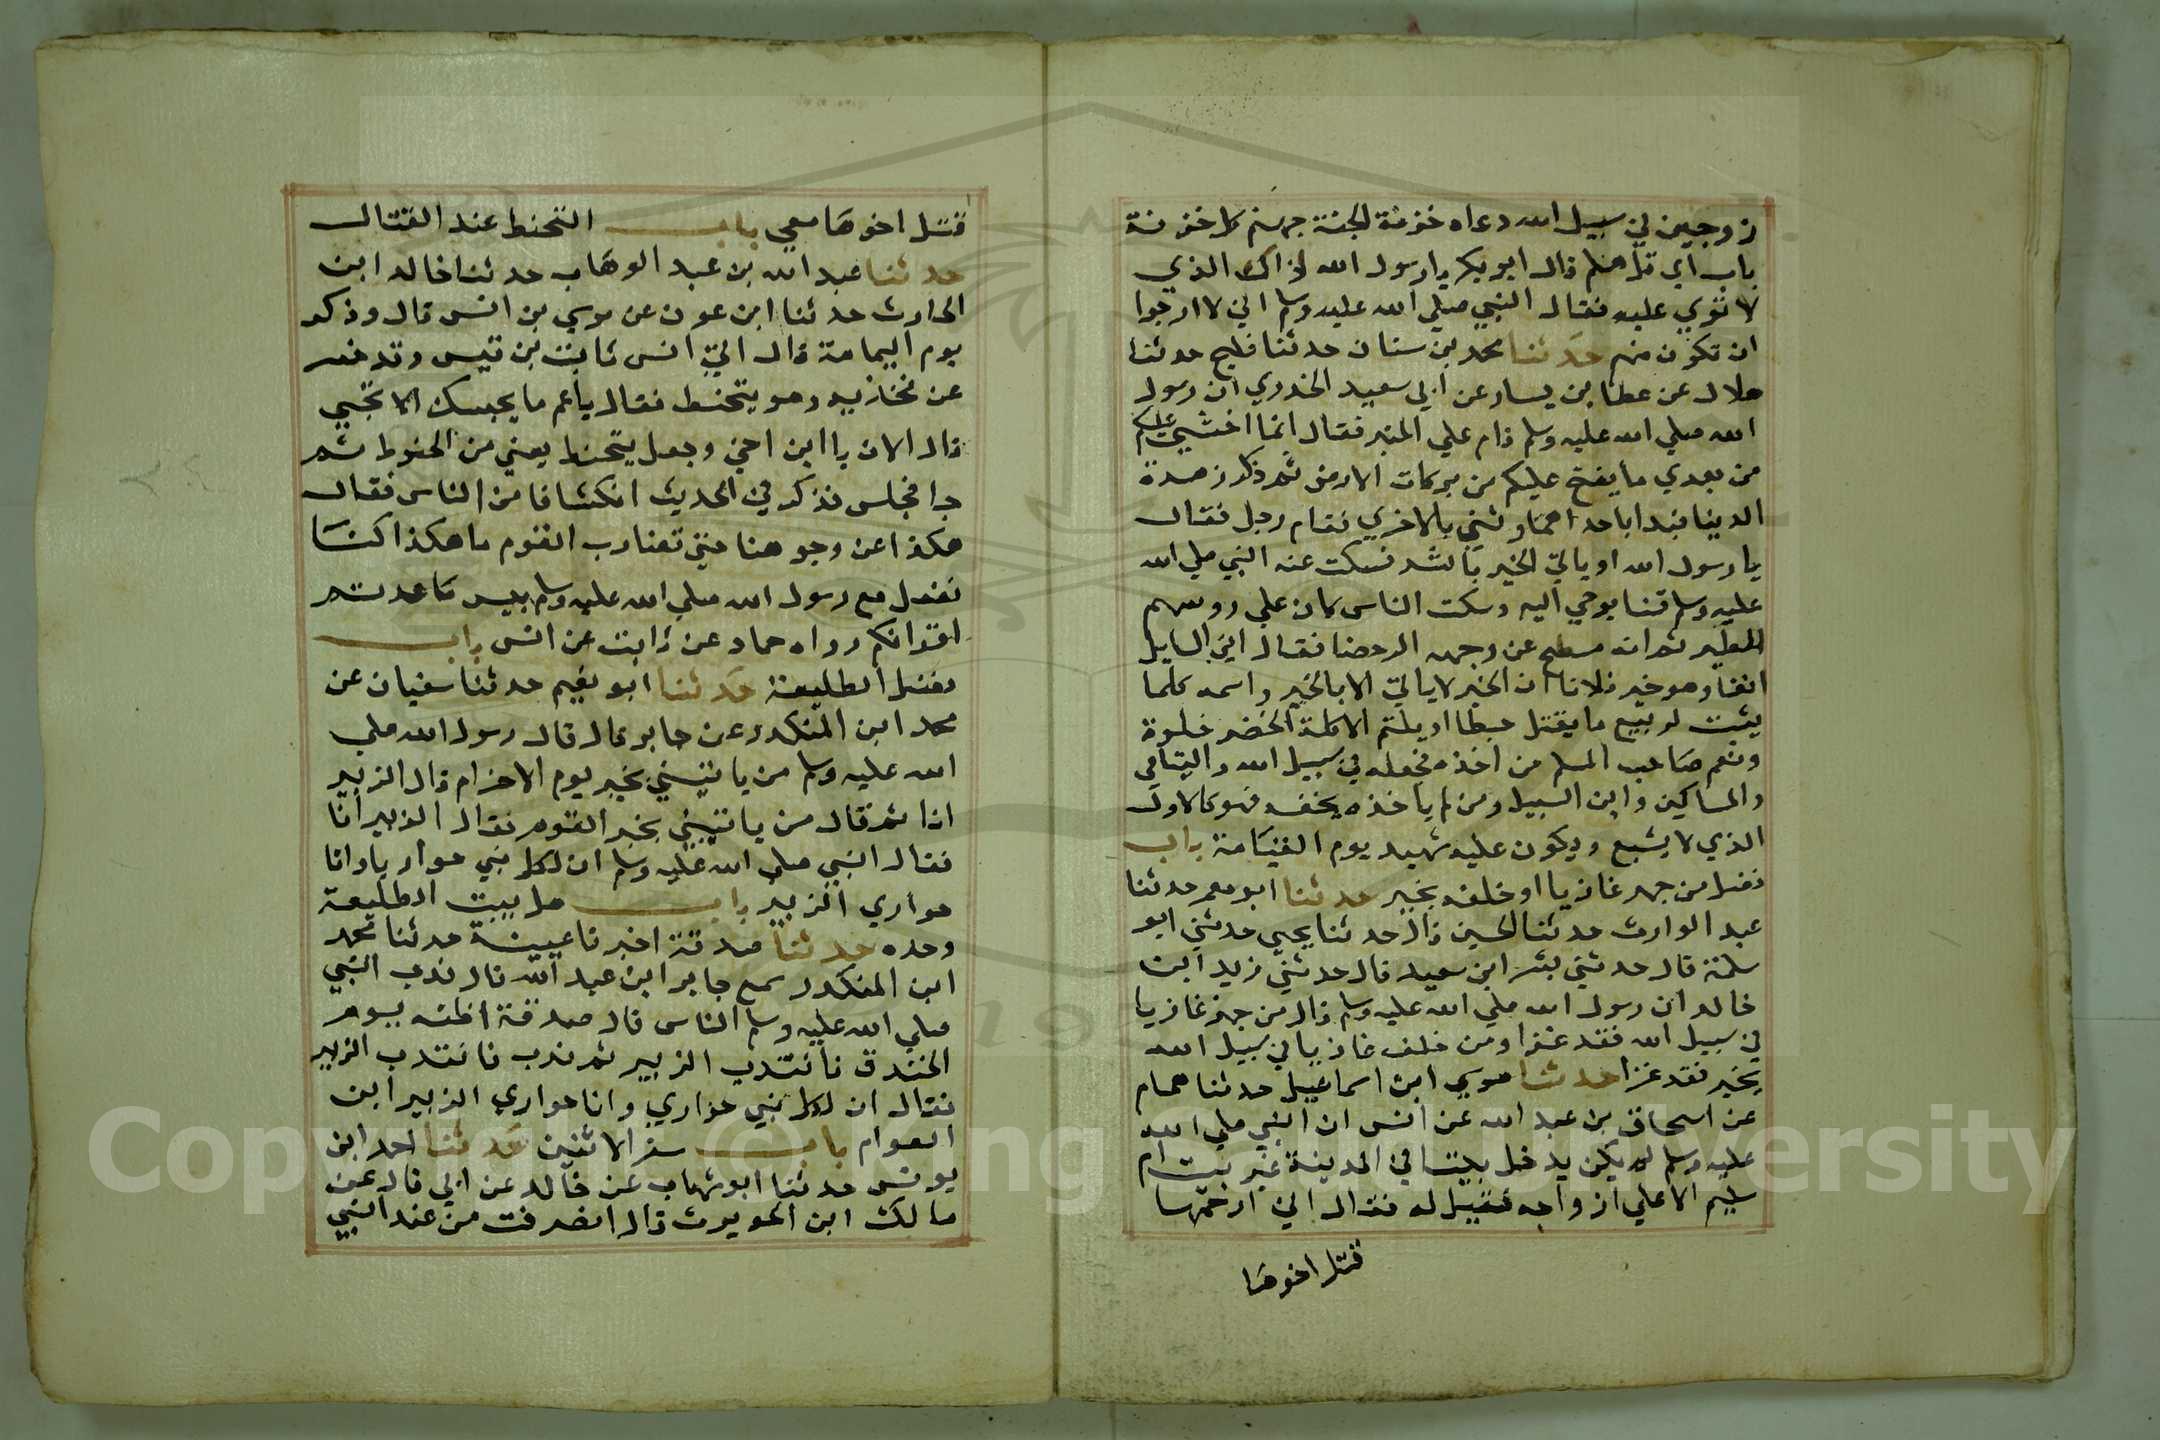 زوجين في سبيل الله دعاه خزنة الجنة جهنم كل خزنة
باب اي قل هلم قال ابو بكر يا رسول الله ذاك الذي
لا توي عليه فقال النبي صلي الله عليه وسلم اني لا ارجوا
ان تكون منهم حدثنا محمد بن سنان حدثنا فليح حدثنا
هلال عن عطا بن يسار عن ابي سعيد الخدري ان رسول
الله صلي الله عليه وسلم قام علي المنبر فقال انما اخشي عليكم
من بعدي ما يفتح عليكم من بركات الارض ثم ذكر زهرة
الدينا فبدا باحداهما وثني بالاخري فقام رجل فقال
يا رسول الله او ياتي الخير بالشر فسكت عنه النبي صلي الله
عليه وسلم قنا يوحي اليه وسكت الناس كان علي روسهم
الطير ثم انه مسح عن وجهه الرحضا فقال اين السايل
انفا وهو خير ثلاثا ان الخير لا ياتي الا بالخير واسمه كلما
ينبت الربيع ما يقتل حبطا او يلتم الا اكلة الخضر خلوة
ونعم صاحب المسلم من اخذه فجعله في سبيل الله واليتامي
والمساكين وابن السبيل ومن لم ياخذه بخفه فهو كالاول
الذي لا يشبع ويكون عليه شهيد يوم القيامة باب
فضل من جهز غازيا او خلفه بخير حدثنا ابو معمر حدثنا
عبد الوارث حدثنا الحسين قال حدثنا يحيي حدثني ابو
سلمة قال حدثني بشر ابن سعيد قال حدثني زيد ابن
خالد ان رسول الله صلي الله عليه وسلم قال من جهز غازيا
في سبيل الله فقد غزا ومن خلف غازيا في سبيل الله
بخير فقد غزا حدثنا موسي ابن اسماعيل حدثنا همام
عن اسحاق بن عبد الله عن انس ان النبي صلي الله
عليه وسلم لم يكن يدخل بيتا في المدينة غير بيت ام
سليم الا علي ازواجه فقيل له فقال اني ارحمها
قتل اخوها
قتل اخوها معي باب التحنط عند القتال
حدثنا عبد الله بن عبد الوهاب حدثنا خالد ابن
الحارث حدثنا ابن عون عن موسي بن انس قال وذكر
يوم اليمامة قال اتي انس ثابت بن قيس وقد حسر
عن فخذيه وهو يتحنط فقال يا عم ما يحبسك الا تجي
قال الان يا ابن اخي وجعل يتحنط يعني من الحنوط ثم
جا فجلس فذكر في الحديث انكشافا من الناس فقال
هكذا عن وجوهنا حتي تضارب القوم ما هكذا كنا
نفعل مع رسول الله صلي الله عليه وسلم بيس ما عدتم
اقرانكم رواه حماد عن ثابت عن انس باب
فضل الطليعة حدثنا ابو نعيم حدثنا سفيان عن
محمد ابن المنكدر عن جابر قال قال رسول الله صلي
الله عليه وسلم من ياتيني بخبر يوم الاحزام قال الزبير
انا ثم قال من ياتيني بخبر القوم فقال الزبير انا
فقال النبي صلي الله عليه وسلم ان لكل نبي حواريا وانا
حواري الزبير باب هل يبعث الطليعة
وحده حدثنا صدقة اخبرنا عيينة حدثنا محمد
ابن المنكدر سمع جابر ابن عبد الله قال ندب النبي
صلي الله عليه وسلم الناس قال صدقة اظنه يوم
الخندق فانتدب الزبير ثم ندب فانتدب الزبير
فقال ان لكل نبي حواري وانا حواري الزبير ابن
العوام باب سفر الاثنين حدثنا احمد ابن
يونس حدثنا ابو شهاب عن خالد عن ابي قال عن
مالك ابن الحويرث قال انصرفت من عند النبي
Copyright © King Saud University